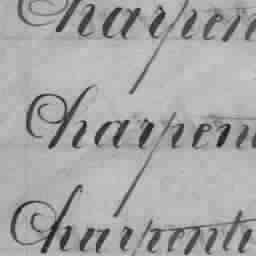 Charpen
Charpen
Charpenti